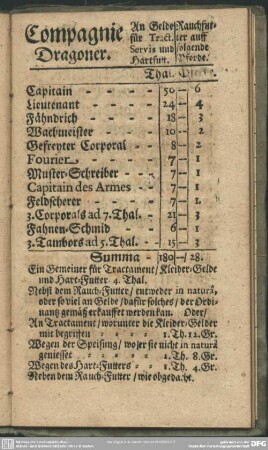 Compagnie Dragoner.
An Gelde für Tract. Servis und Hartfut.
Rauchfut-ter auff folgende Pferde.
Thal.
Capitain - - - - - 50 — 6
Lieutenant - - - - 24 — 4
Fähndrich - - - - 18 — 3
Wachmeister - - - 10 — 2
Gefreyter Corporal - - 8 — 2
Fourier - - - - 7 — 1
Muster-Schreiber - - - 7 — 1
Capitain des Armes - - 7 — 1
Feldscherer - - - - 7 — 1
3. Corporals ad 7. Thal. - 21 — 3
Fahnen-Schmid - - - 6 — 1
3. Tambors ad 5. Thal. - - 15 — 3
Summa - 180 — / 28.
Ein Gemeiner für Tractament / Kleider-Gelde
und Hart-Futter 4. Thal.
Nebst dem Rauch-Futter / entweder in naturâ,
oder so viel an Gelde / dafür solches / der Ordi-
nang gemäß erkauffet werden kan. Oder /
An Tractament / worunter die Kleider-Gelder
mit begriffen - - - 1. Th. 12. Gr.
Wegen der Speisung / wo jer sie nicht in naturâ
geniesset - - - - 1. Th. 8. Gr.
Wegen des Hart-Futters - - 1. Th. 4. Gr.
Neben dem Rauch-Futter / wie obgedacht.